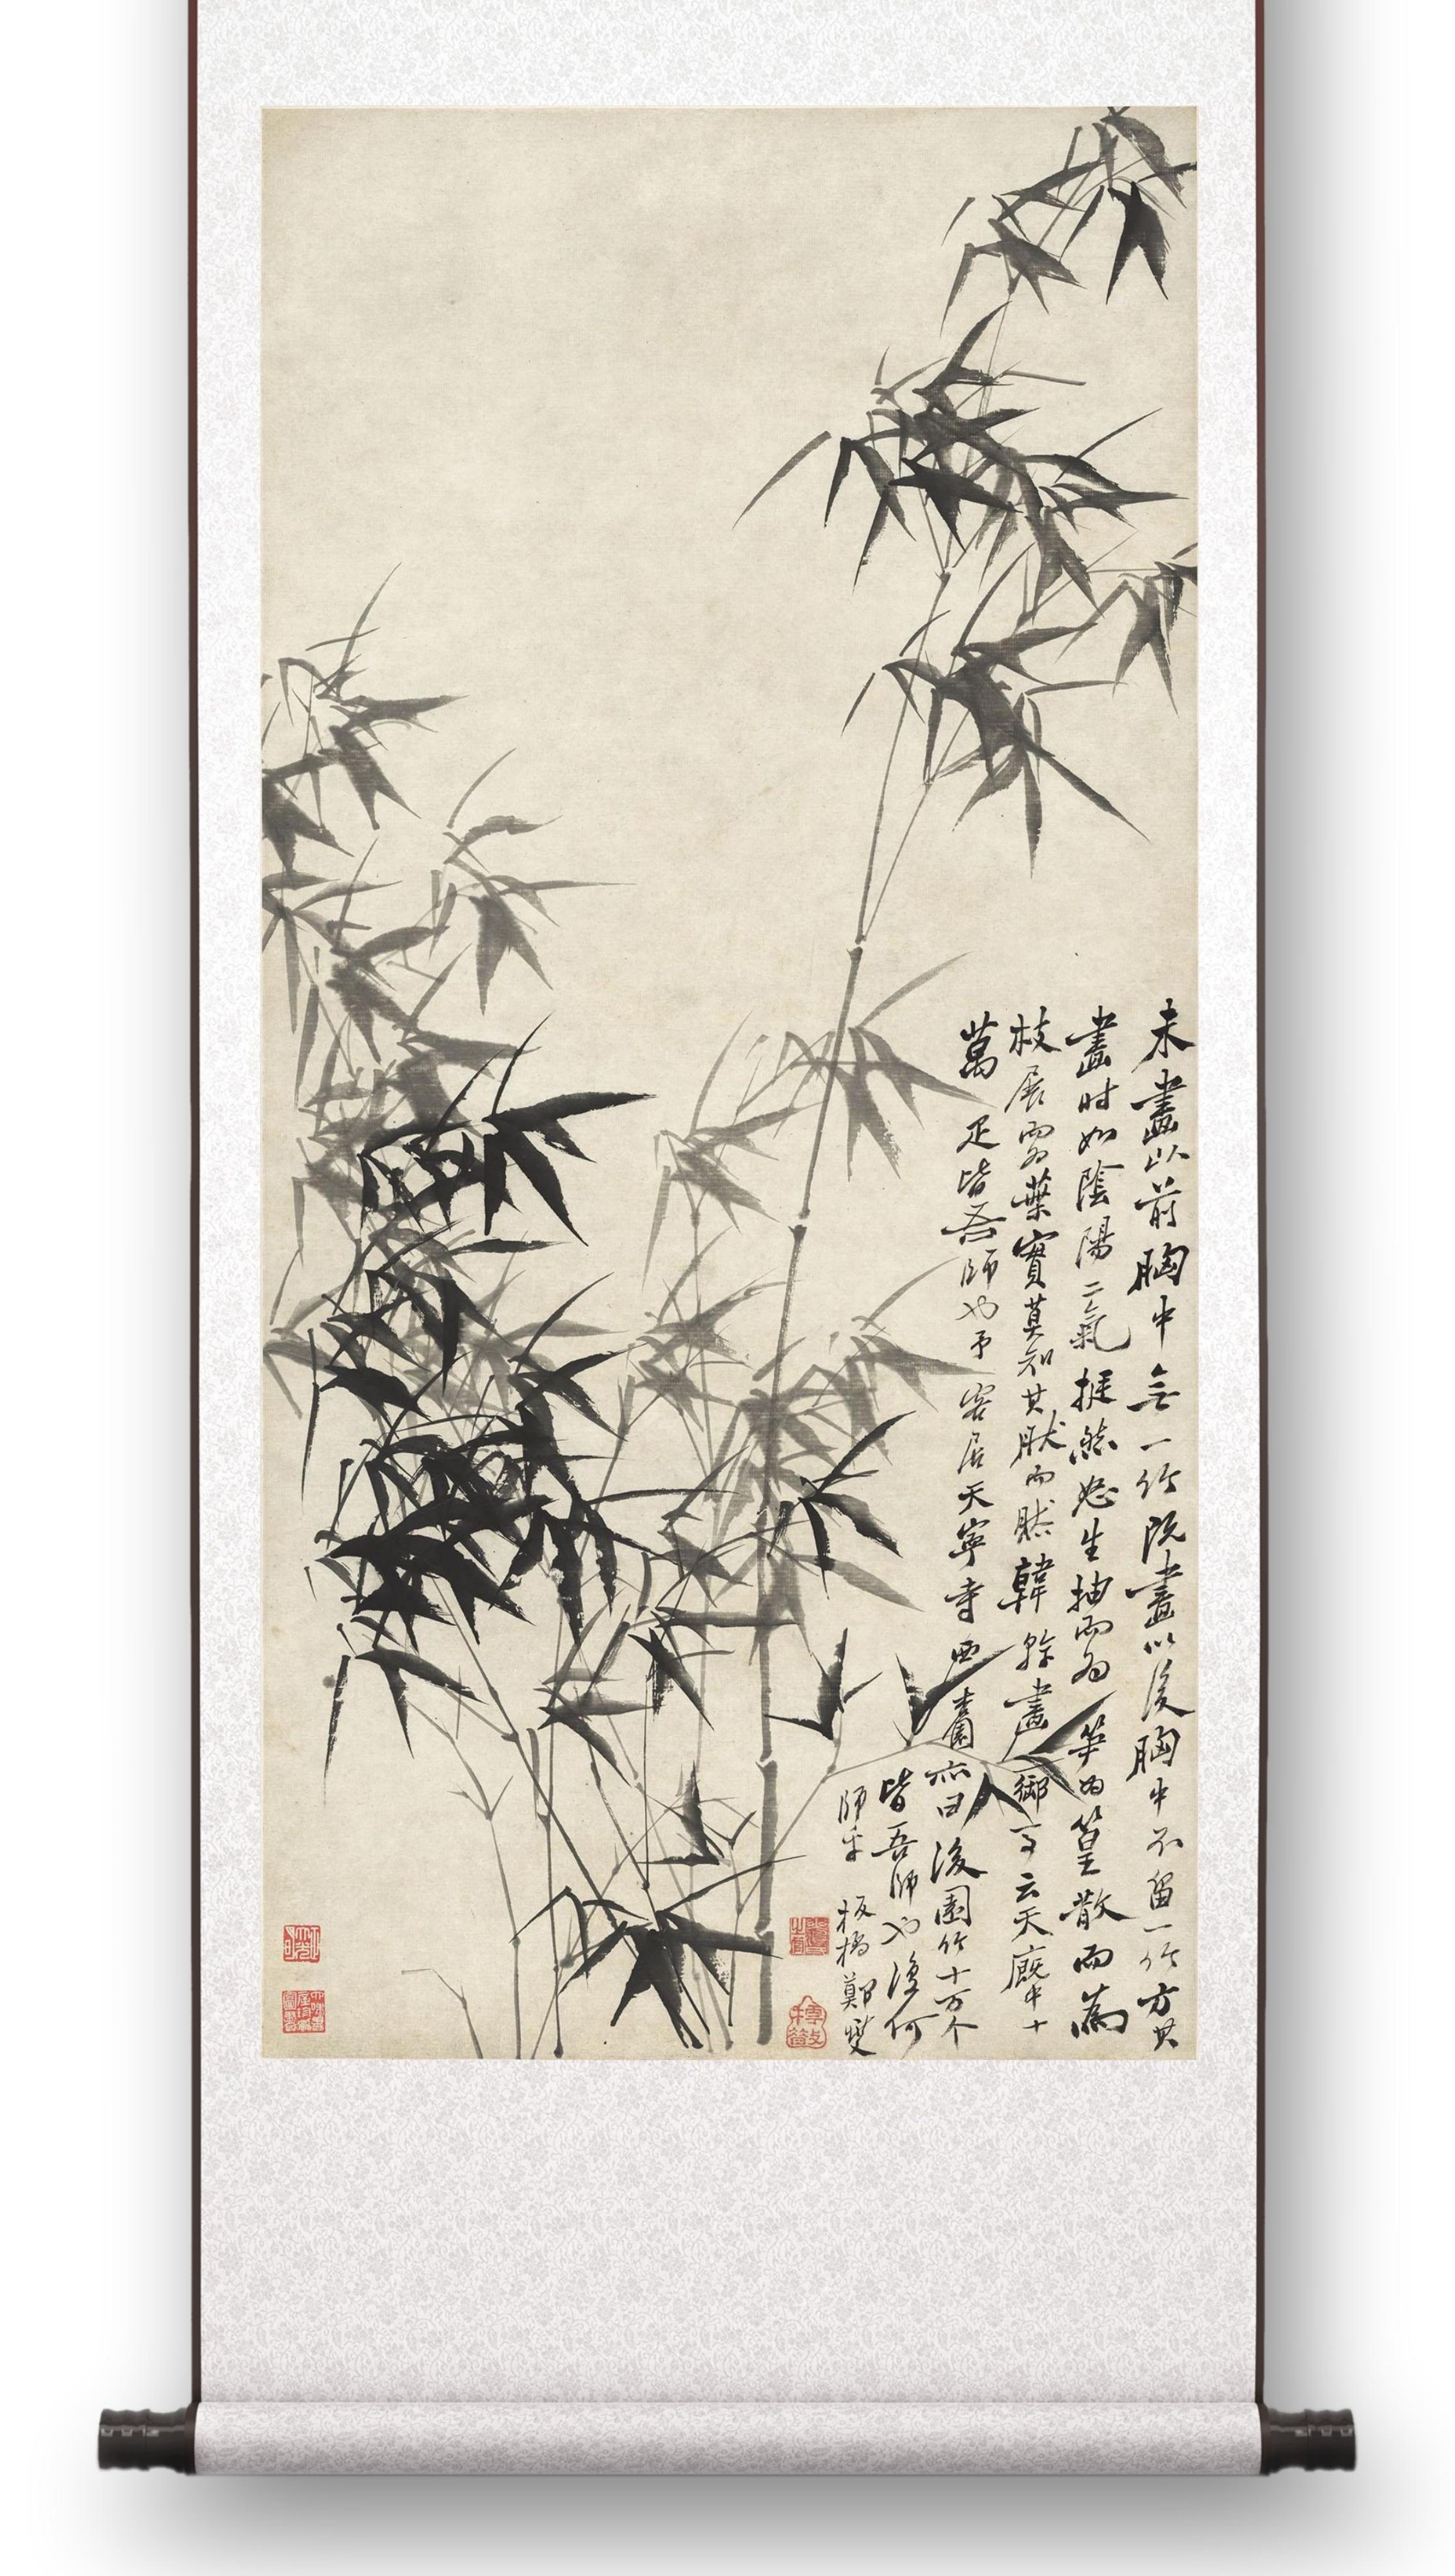 未畫以前胸中無一竹既畫以後胸中不留一竹方其
畫时如陰陽二氣挺然怒生抽而為笋为篁散而為
枝展而為葉實莫知其肰而肰韓幹畫御马云天廐中十
萬疋皆吾師也予客居天寧寺西杏園亦曰後園竹十万个
皆吾師也復何
師乎
板橋鄭燮